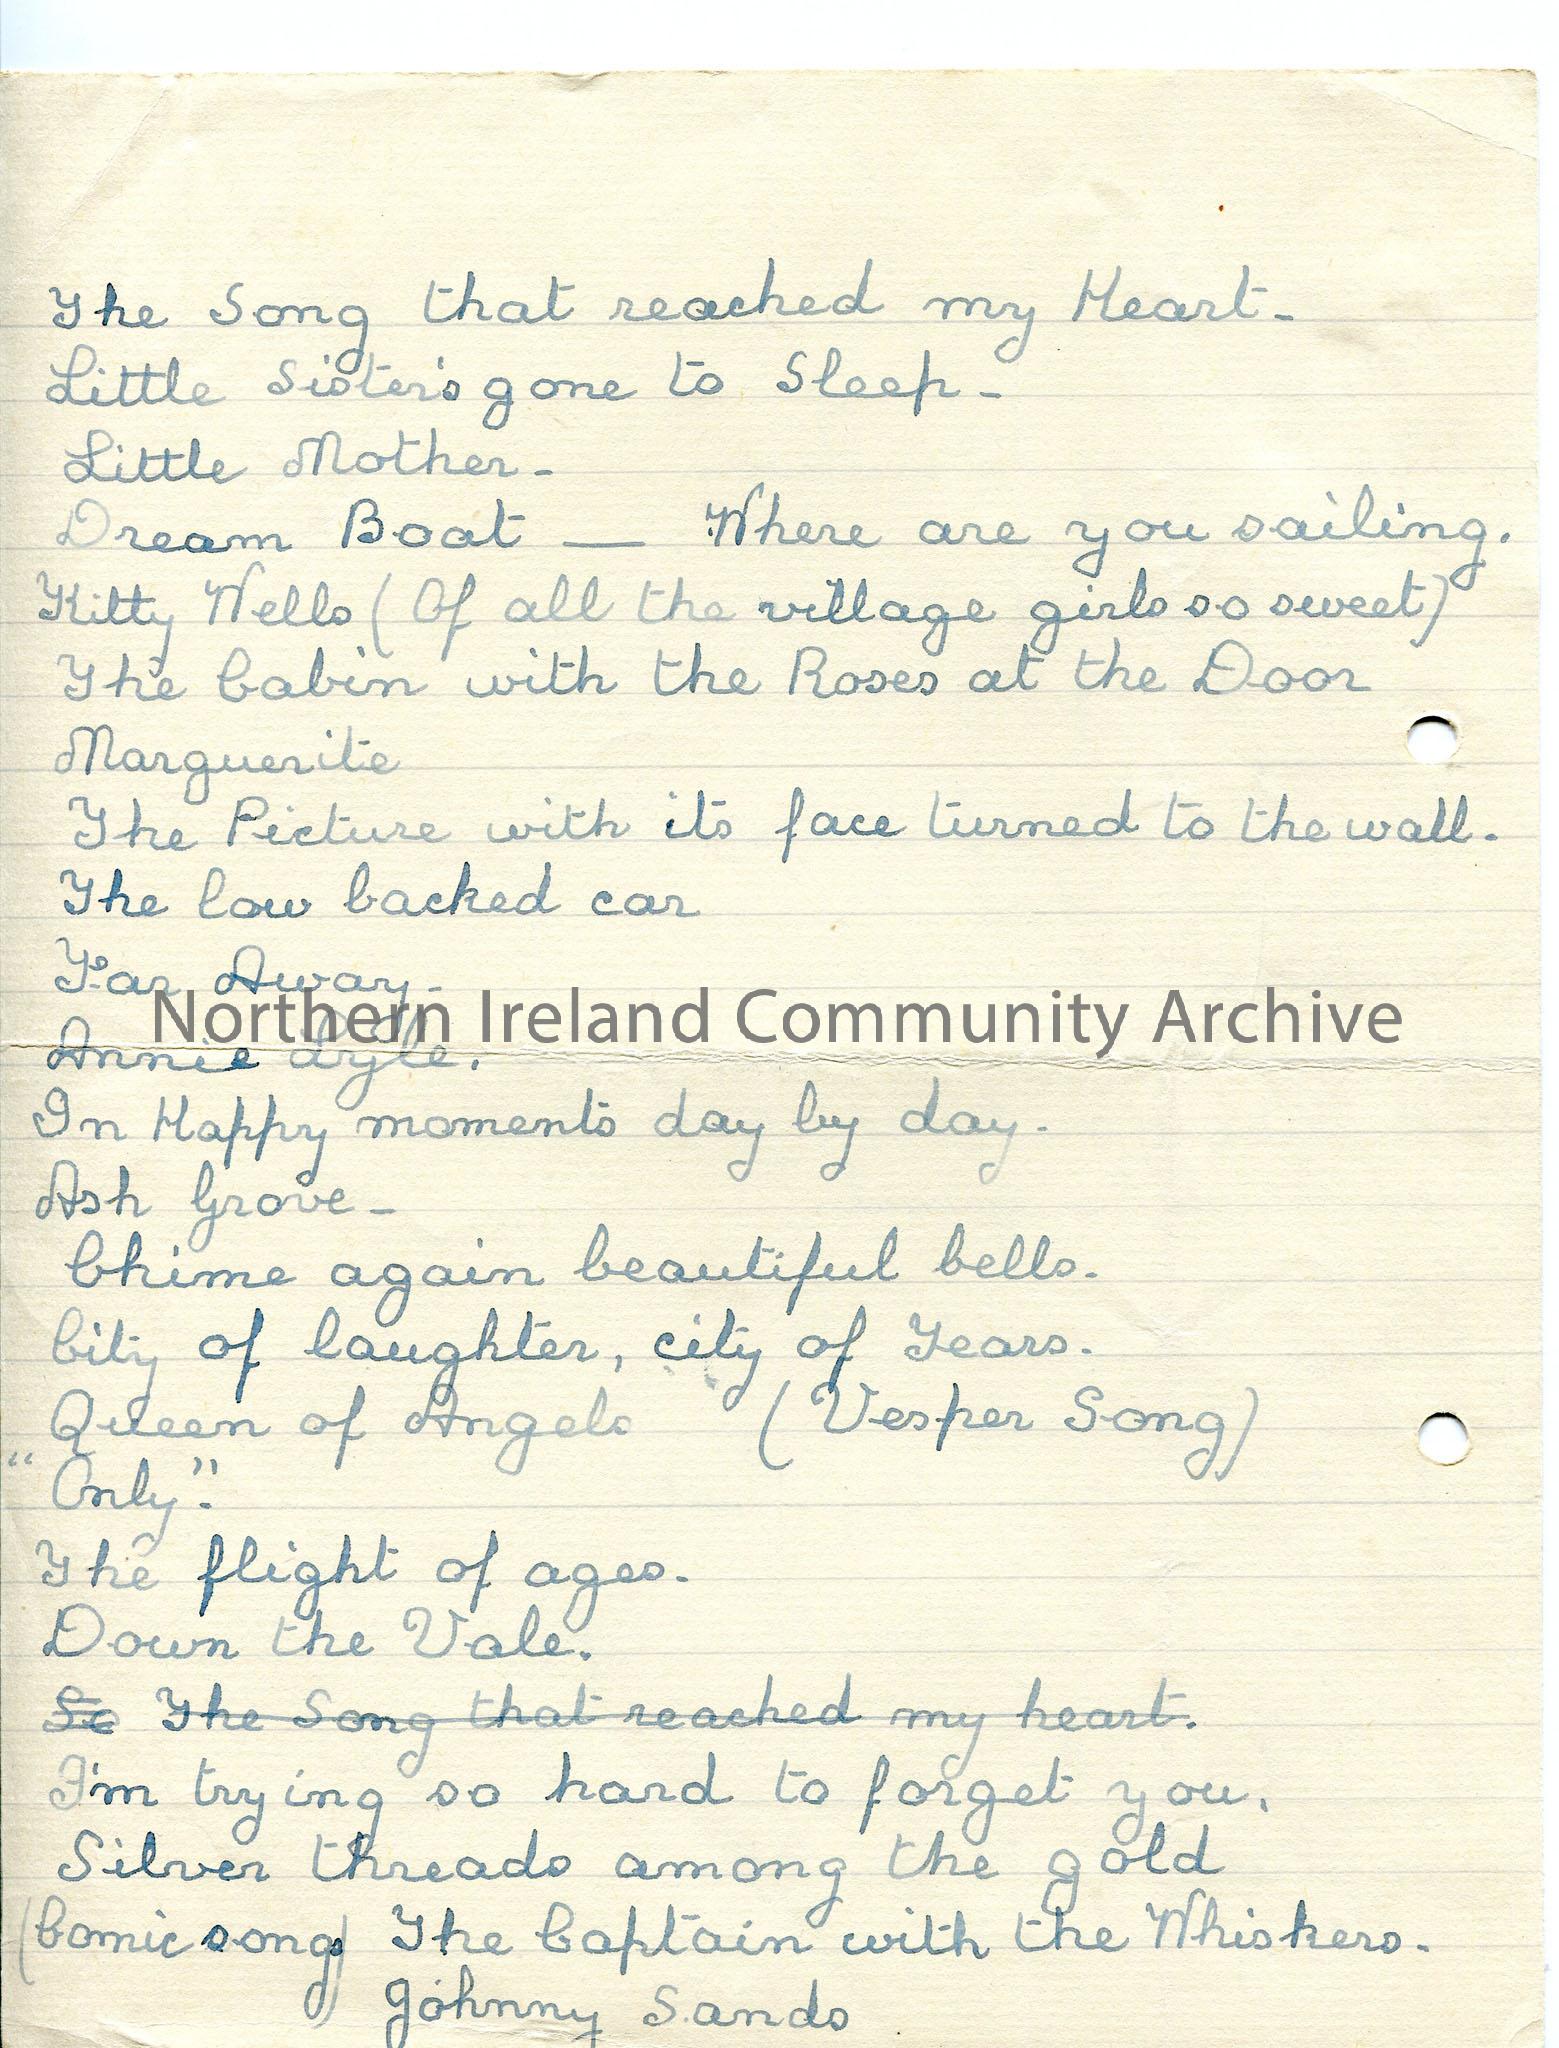 The Song that reached my Heart -
Little Sister's gone to Sleep -
Little Mother -
Dream Boat — Where are you sailing.
Kitty Wells (Of all the village girls so sweet)
The Cabin with the Roses at the Door
Marguerite
The Picture with its face turned to the wall.
The low backed car
Far Away.
Northern Ireland Community Archive
Annie Lyle.
In Happy moments day by day.
Ash Grove -
Chime again beautiful bells.
City of laughter, city of Tears.
Queen of Angels (Vesper Song)
"Only".
The flight of ages.
Down the Vale.
So The Song that reached my heart.
I'm trying so hard to forget you,
Silver threads among the gold
(Comic songs) The Captain with the Whiskers.
Johnny Sands